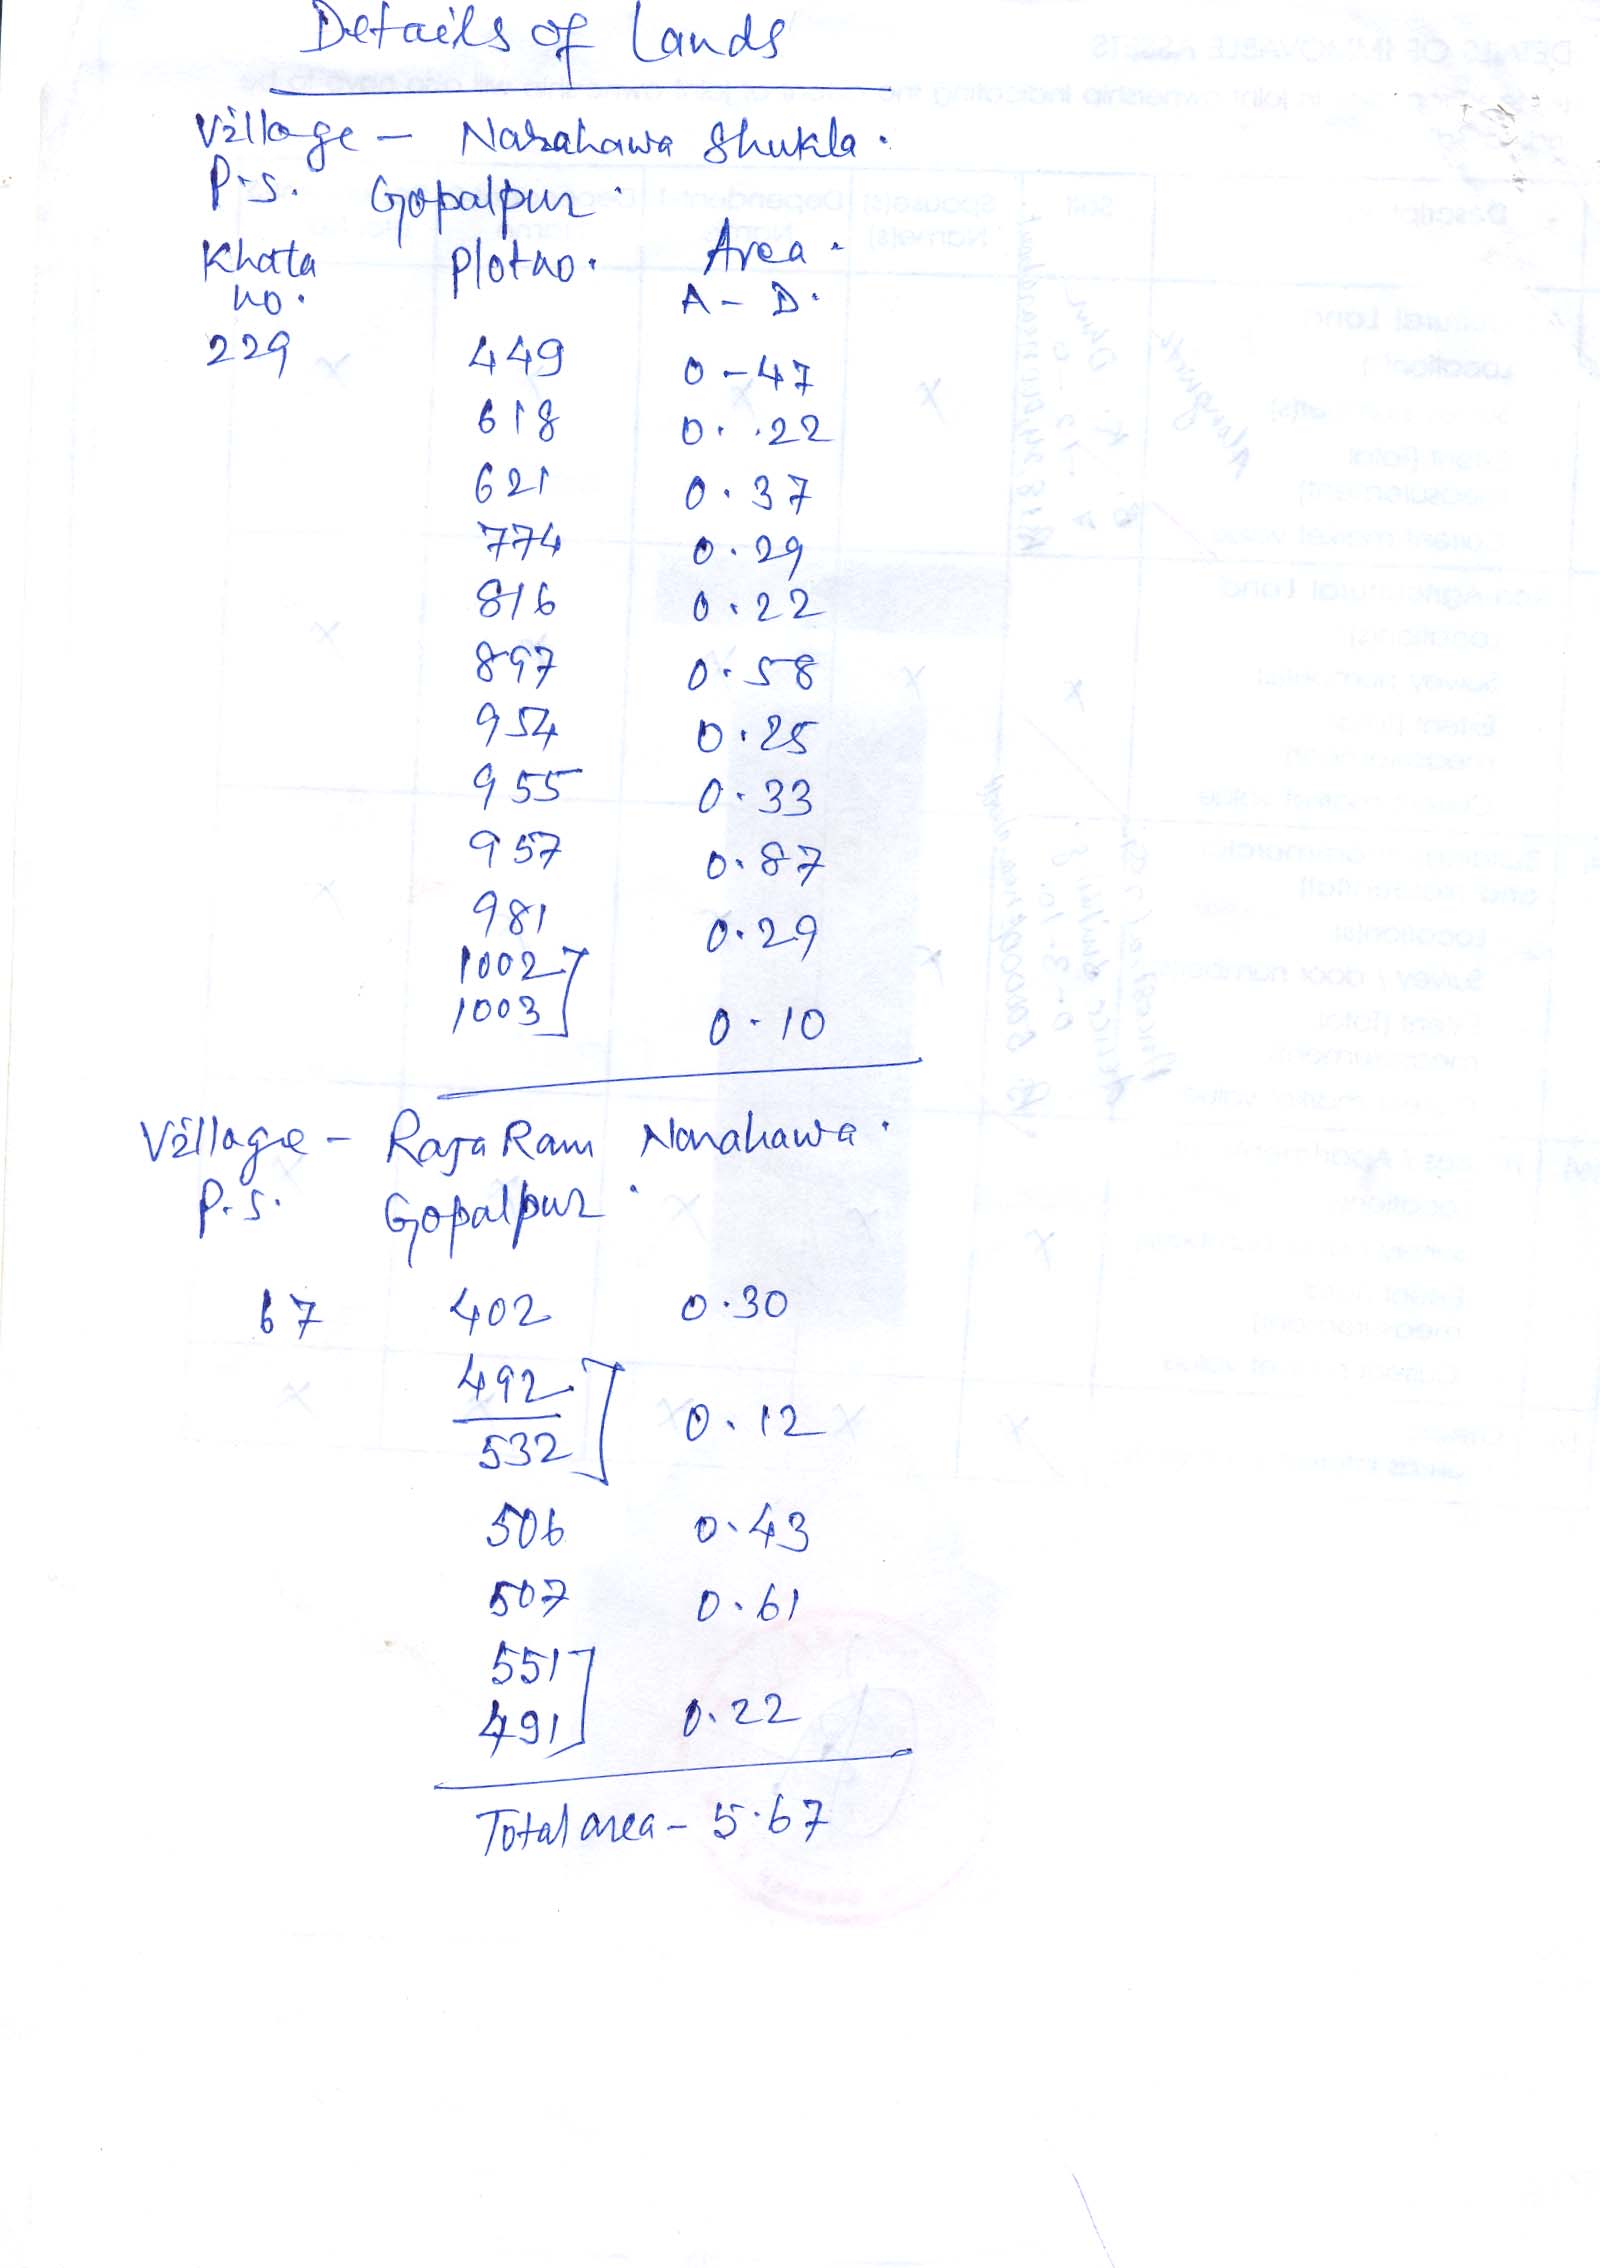 Details of Lands
Village - Narahawa Shukla.
P.S. Gopalpur.
Khata no. Plot no. Area.
A - D.
229 449 0-47
618 0.22
621 0.37
774 0.29
816 0.22
897 0.58
954 0.25
955 0.33
957 0.87
981 0.29
1002
1003 0.10
Village - Raja Ram Narahawa.
P.S. Gopalpur.
67 402 0.30
492
532 0.12
506 0.43
507 0.61
551
491 0.22
Total area - 5.67